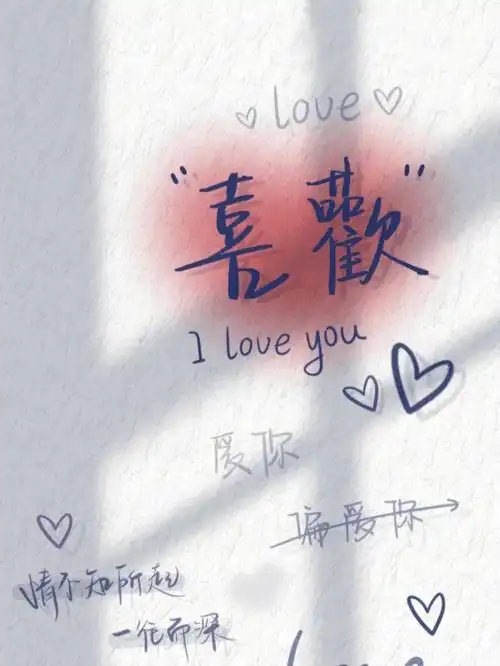 love
"喜歡"
I love you
爱你
偏爱你
情不知所起
一往而深
love